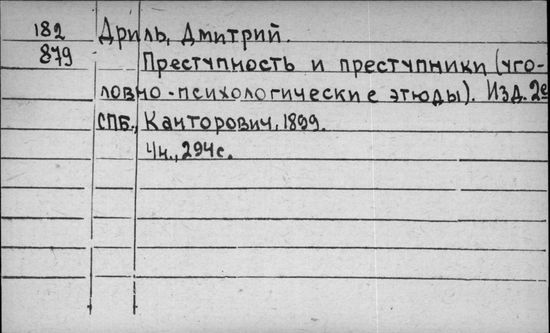 182 Дриль, Дмитрий.
879 Преступность и преступники (уго-
ловно-психологические этюды). Изд. 2е
СПБ., Канторович, 1899.
4н., 294с.